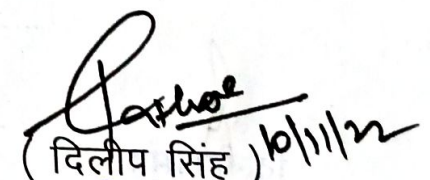 ( दिलीप सिंह ) 10/11/22